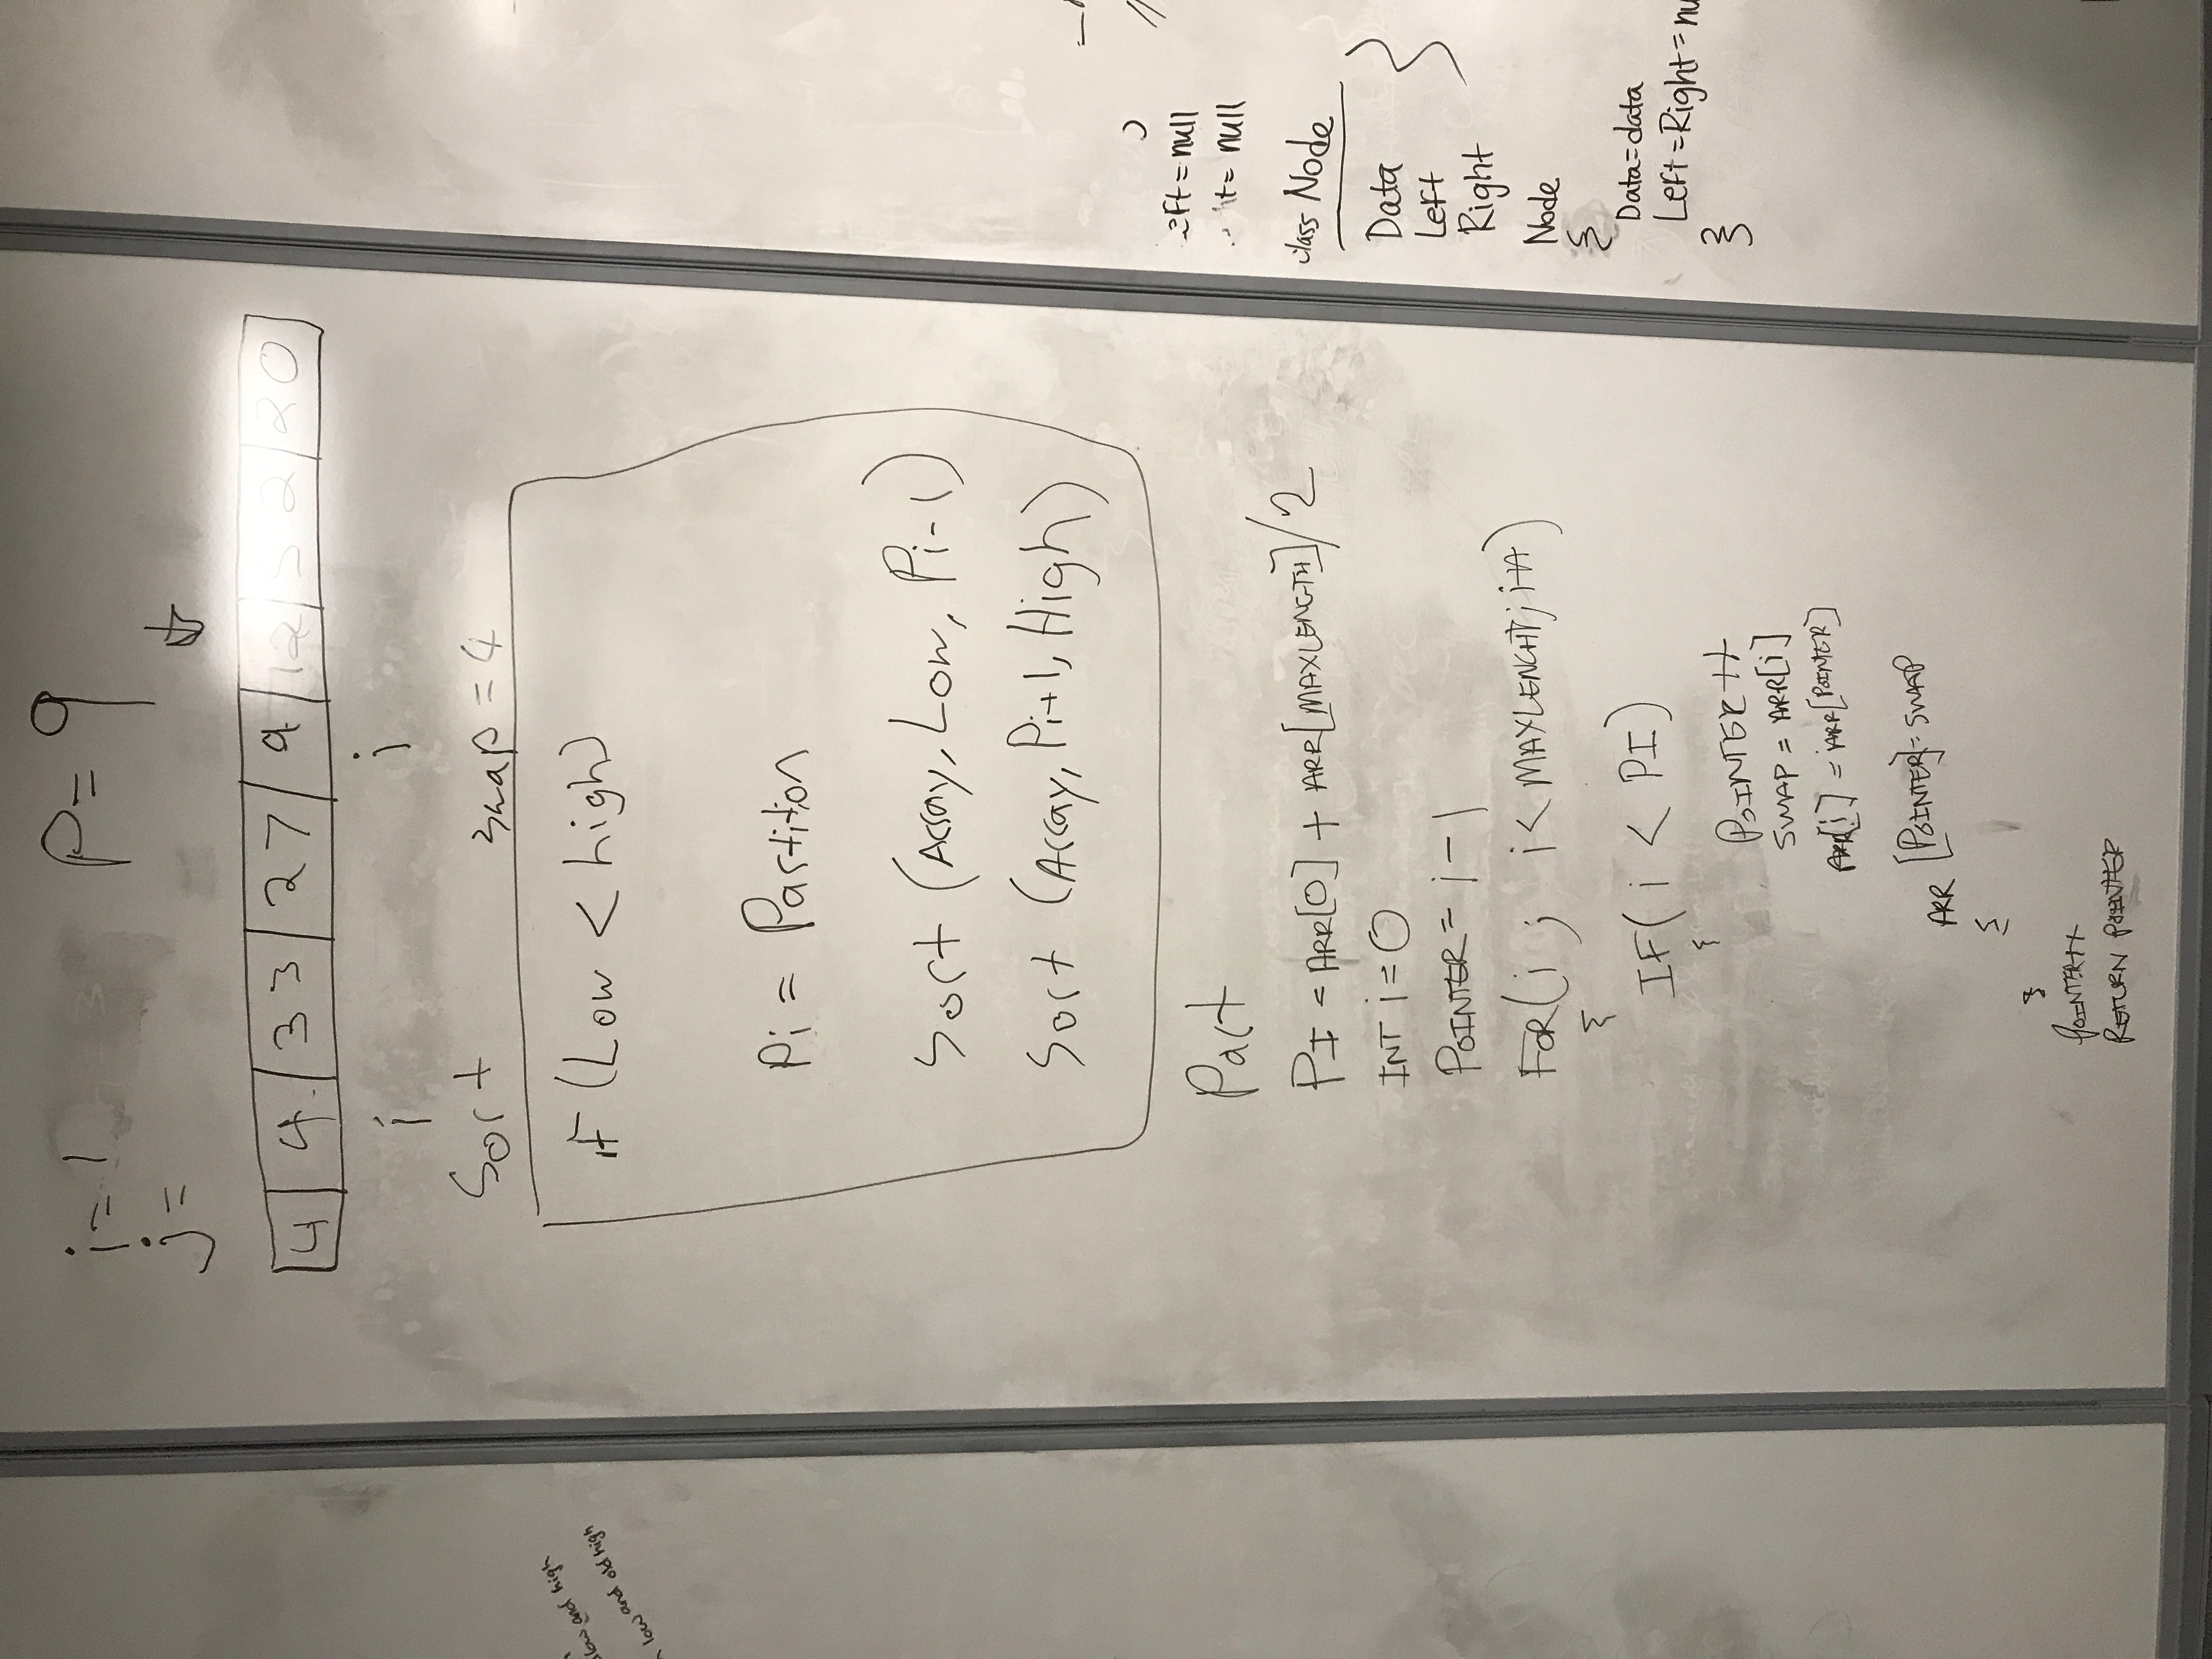 i = 1
j =
P = 9
4 4 33 27 9 12 52 20
i j
Sort swap = 4
if (Low < high)
Pi = Partition
Sort (Array, Low, Pi-1)
Sort (Array, Pi+1, High)
Part
PI = ARR[0] + ARR[MAXLENGTH]/2
INT i = 0
POINTER = i - 1
FOR(i ; i < MAXLENGHT; i++)
{
IF( i < PI)
{
POINTER ++
SWAP = ARR[i]
ARR[i] = ARR[POINTER]
ARR [POINTER] = SWAP
{
}
POINTER++
RETURN POINTER
low and high
low and old high
= null
= null
class Node
Data
Left
Right
Node
{
Data=data
Left=Right=
}